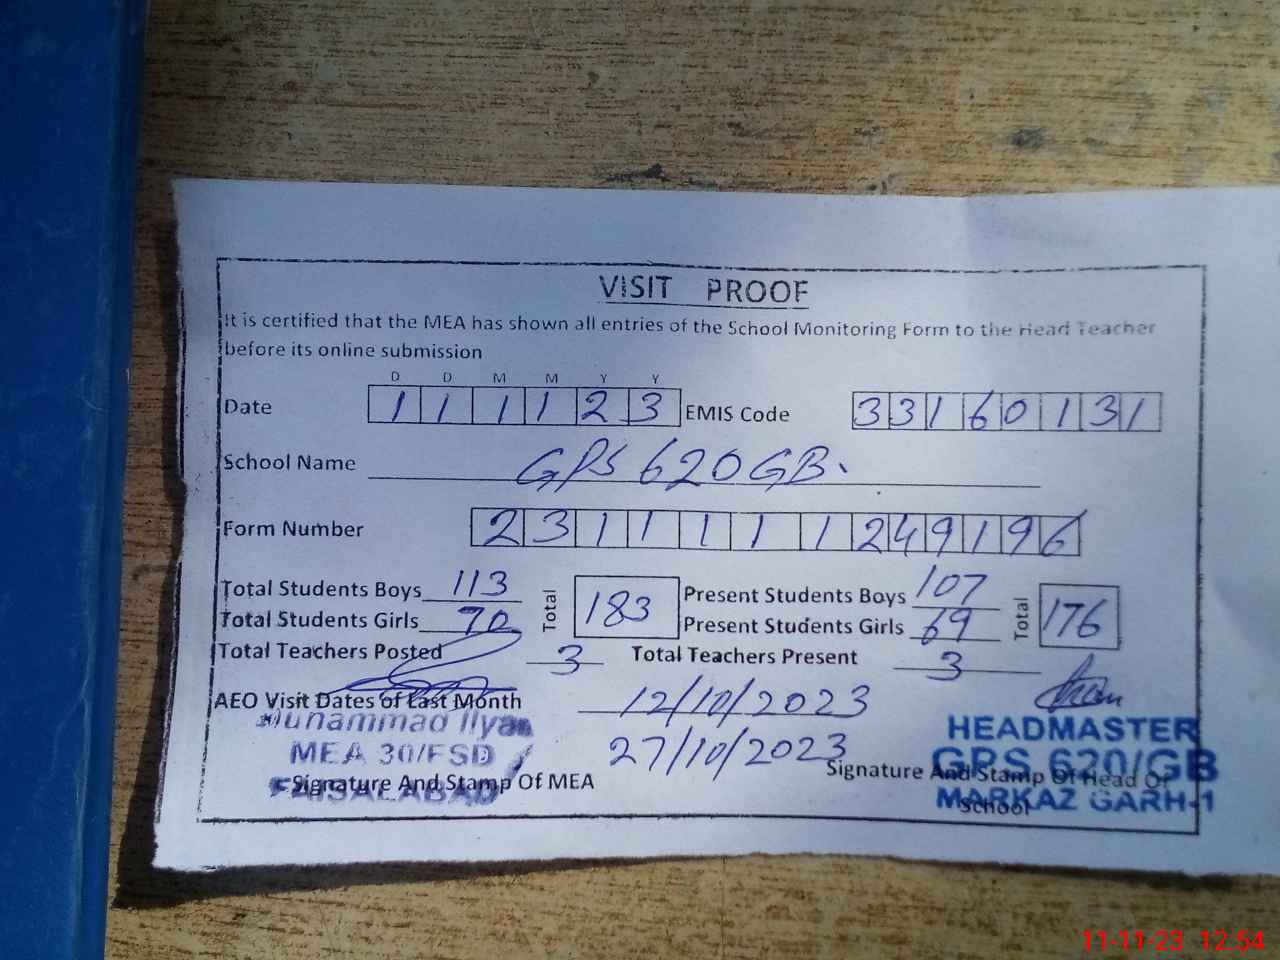 VISIT PROOF
It is certified that the MEA has shown all entries of the School Monitoring Form to the Head Teacher
before its online submission
D D M M Y Y
Date 1 1 1 1 2 3 EMIS Code 3 3 1 6 0 1 3 1
School Name GPS 620 GB.
Form Number 2 3 1 1 1 1 1 2 4 9 1 9 6
Total Students Boys 113 Total 183 Present Students Boys 107 Total 176
Total Students Girls 70 Present Students Girls 69
Total Teachers Posted 3 Total Teachers Present 3
AEO Visit Dates of Last Month 12/10/2023
27/10/2023
Muhammad Ilyas
MEA 30/FSD
FAISALABAD
Signature And Stamp Of MEA
HEADMASTER
GPS 620/GB
MARKAZ GARH-1
Signature And Stamp Of Head Of
School
11-11-23 12:54